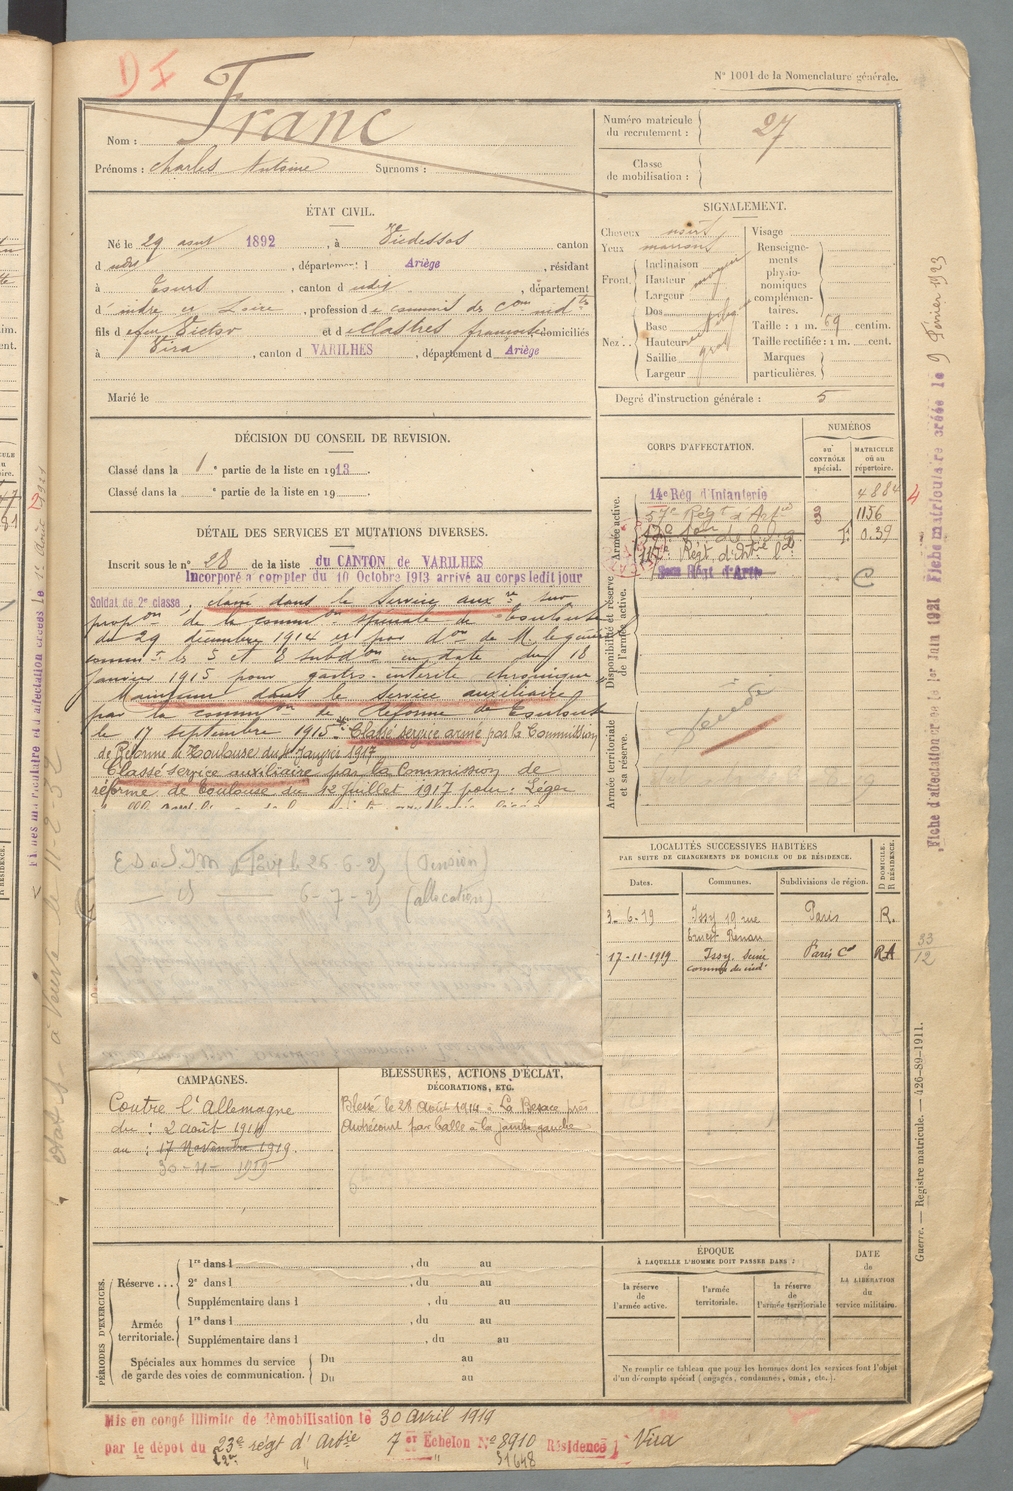 D I
N° 1001 de la Nomenclature générale.
Nom : Franc
Prénoms : Charles Antoine Surnoms :
Numéro matricule du recrutement : 27
Classe de mobilisation :
ÉTAT CIVIL.
Né le 29 août 1892, à Vicdessos canton
d udit, département d Ariège, résidant
à Tours, canton d udit, département
d' indre et Loire, profession de commis des Com ind tes
fils de feu Victor et de Clastres françoise domiciliés
à Vira, canton d VARILHES, département d Ariège
Marié le
SIGNALEMENT.
Cheveux noirs
Yeux marrons
Front
Inclinaison
Hauteur moyen
Largeur
Nez
Dos
Base
Hauteur
Saillie gros
Largeur
Visage
Renseignements physionomiques complémentaires.
Taille : 1 m. 69 centim.
Taille rectifiée : 1 m. cent.
Marques particulières.
Degré d'instruction générale : 5
DÉCISION DU CONSEIL DE REVISION.
Classé dans la 1e partie de la liste en 1913.
Classé dans la e partie de la liste en 19
DÉTAIL DES SERVICES ET MUTATIONS DIVERSES.
Inscrit sous le n° 28 de la liste du CANTON de VARILHES
Incorporé à compter du 10 Octobre 1913 arrivé au corps ledit jour
Soldat de 2e classe, classé dans le service auxre sur
propon de la common spéciale de Toulouse
du 29 décembre 1914 et par don de M. le général
commt les 5 et 8 subdon en date du 18
janvier 1915 pour gastro-entérite chronique
Maintenu dans le service auxiliaire
par la common de Réforme de Toulouse
le 17 septembre 1915. Classé service armé par la Commission
de Réforme de Toulouse du 11 Janvier 1917
Classé service auxiliaire par la Commission de
réforme de Toulouse du 12 juillet 1917 pour : Léger
25-6-25 (Pension)
6-7-25 (allocation)
CORPS D'AFFECTATION.
NUMÉROS
au CONTRÔLE spécial.
MATRICULE ou au répertoire.
Armée active.
14e Rég d'Infanterie 4884
57e Régt d'Artie 3 1156
117e Régt d'Artie lde
Régt d'Artie
C
Disponibilité et réserve de l'armée active.
Armée territoriale et sa réserve.
LOCALITÉS SUCCESSIVES HABITÉES
PAR SUITE DE CHANGEMENTS DE DOMICILE OU DE RÉSIDENCE.
Dates.
Communes.
Subdivisions de région.
D DOMICILE. R RÉSIDENCE.
3-6-19 Issy 19 rue Ernest Renan Paris R.
17-11-1919 Issy Seine Paris Cal RA
33
12
CAMPAGNES.
Contre l'Allemagne
du : 2 août 1914
au : 17 Novembre 1919.
BLESSURES, ACTIONS D'ÉCLAT,
DÉCORATIONS, ETC.
Blessé le 28 Août 1914 à La Besace près
Autrecourt par balle à la jambe gauche
PÉRIODES D'EXERCICES.
Réserve ...
1re dans l , du au
2e dans l , du au
Supplémentaire dans l , du au
Armée territoriale.
1re dans l , du au
Supplémentaire dans l , du au
Spéciales aux hommes du service de garde des voies de communication.
Du au
Du au
ÉPOQUE
À LAQUELLE L'HOMME DOIT PASSER DANS :
la réserve de l'armée active.
l'armée territoriale.
la réserve de l'armée territoriale
DATE de LA LIBÉRATION du service militaire.
Ne remplir ce tableau que pour les hommes dont les services font l'objet
d'un décompte spécial (engagés, condamnés, omis, etc.).
Mis en congé illimité de démobilisation le 30 avril 1919
par le dépôt du 23e régt d'Artie 7er Échelon N° 8910 Résidence Vira
31648
Fiche d'affectation créée le 1er Juin 1921 Fiche matriculaire créée le 9 Février 1923
Guerre. — Registre matricule. — 426-89-1911.